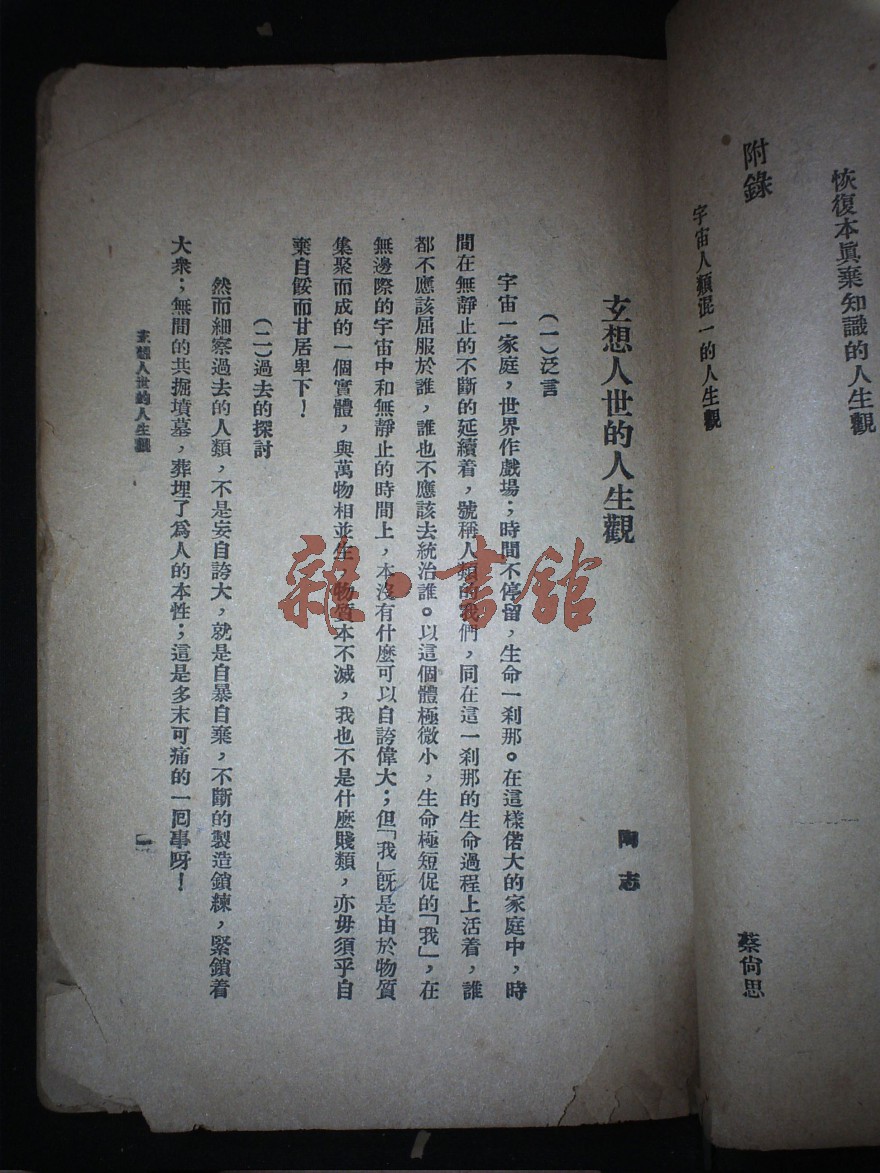 恢復本眞棄知識的人生觀
附錄
宇宙人類混一的人生觀
蔡尙思
玄想人世的人生觀
陶志
(一)泛言
宇宙一家庭，世界作戲場；時間不停留，生命一刹那。在這樣偌大的家庭中，時
間在無靜止的不斷的延續着，號稱人類的我們，同在這一刹那的生命過程上活着，誰
都不應該屈服於誰，誰也不應該去統治誰。以這個體極微小，生命極短促的「我」，在
無邊際的宇宙中和無靜止的時間上，本沒有什麼可以自誇偉大；但「我」旣是由於物質
集聚而成的一個實體，與萬物相並生，物質本不滅，我也不是什麼賤類，亦毋須乎自
棄自餒而甘居卑下！
(二)過去的探討
然而細察過去的人類，不是妄自誇大，就是自暴自棄，不斷的製造鎖練，緊鎖着
大衆；無間的共掘墳墓，葬埋了爲人的本性；這是多末可痛的一囘事呀！
玄想人世的人生觀
一
雜·書館